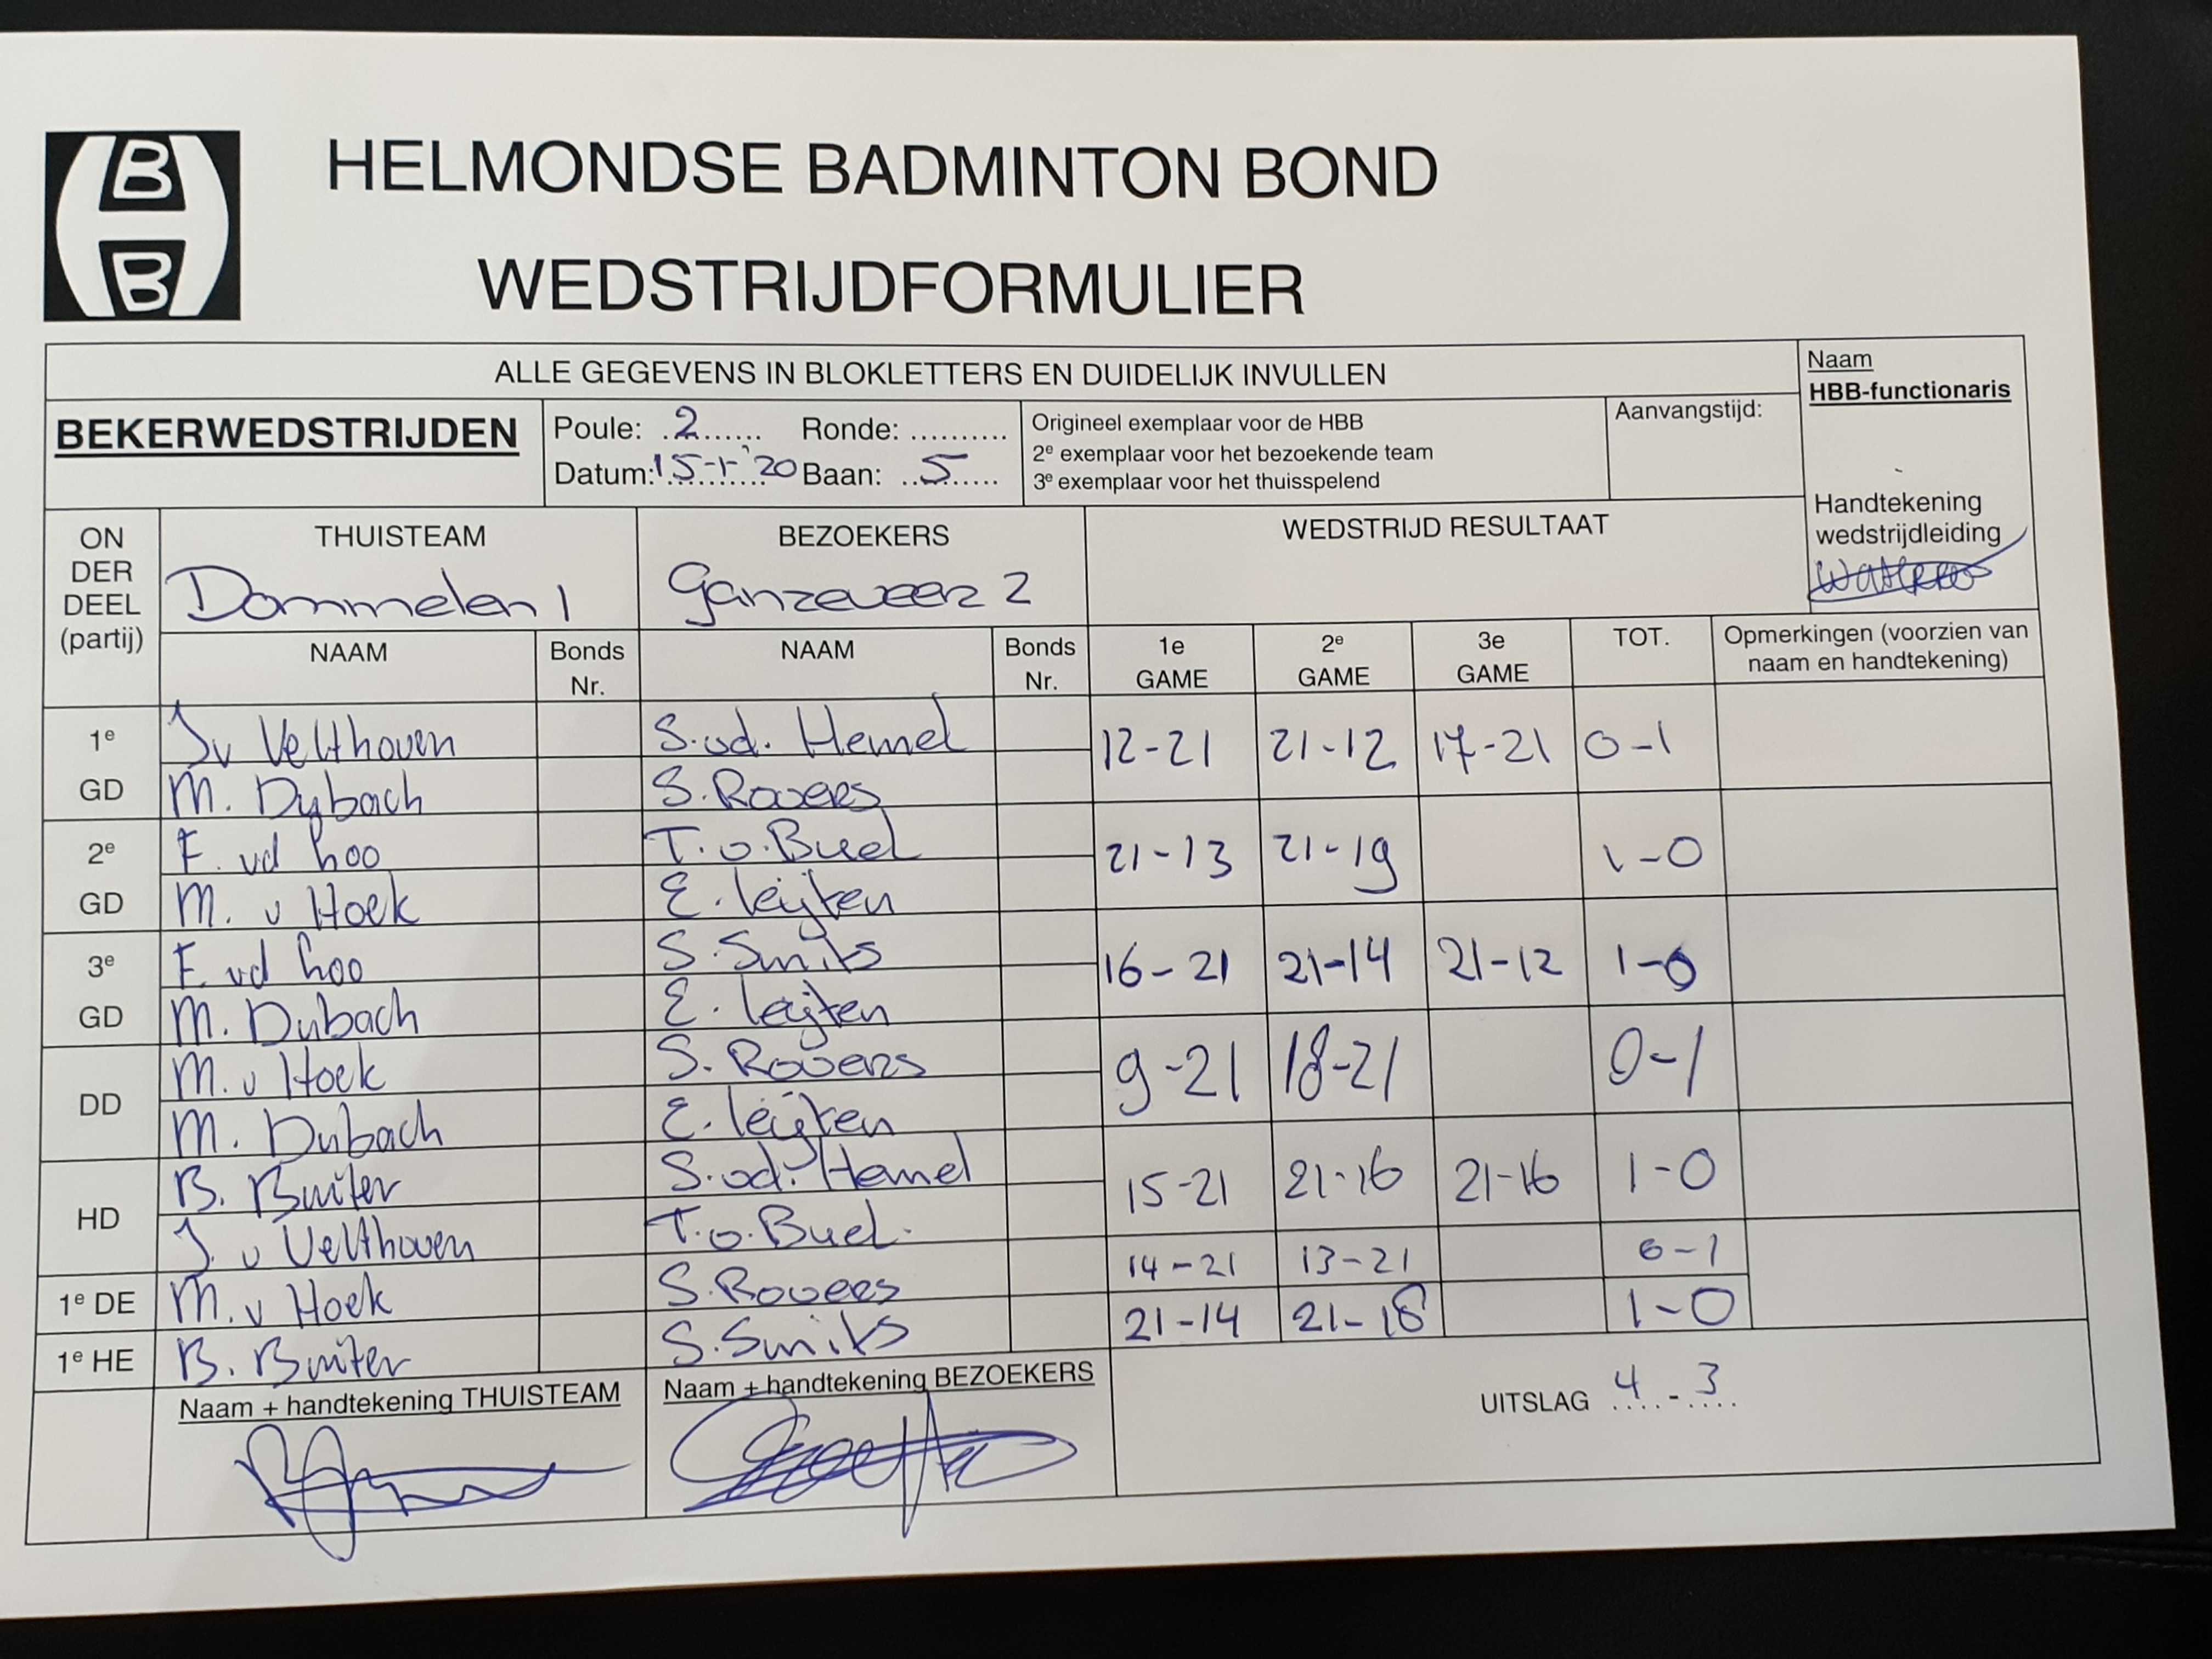 B
B
HELMONDSE BADMINTON BOND
WEDSTRIJDFORMULIER
ALLE GEGEVENS IN BLOKLETTERS EN DUIDELIJK INVULLEN
Naam
HBB-functionaris
BEKERWEDSTRIJDEN
Poule: 2 Ronde: ..........
Datum: 15-1-'20 Baan: 5
Origineel exemplaar voor de HBB
2e exemplaar voor het bezoekende team
3e exemplaar voor het thuisspelend
Aanvangstijd:
Handtekening
wedstrijdleiding
ON
DER
DEEL
(partij)
THUISTEAM
Dommelen 1
BEZOEKERS
Ganzeveer 2
WEDSTRIJD RESULTAAT
NAAM
Bonds
Nr.
NAAM
Bonds
Nr.
1e
GAME
2e
GAME
3e
GAME
TOT.
Opmerkingen (voorzien van
naam en handtekening)
1e
GD
J v Velthoven
M. Dybach
S. vd. Hemel
S. Rovers
12-21 21-12 17-21 0-1
2e
GD
F. vd Loo
M. v Hoek
T. v. Buel
E. Leijten
21-13 21-19 1-0
3e
GD
F. vd Loo
M. Dubach
S. Smits
E. Leijten
16-21 21-14 21-12 1-0
DD
M. v Hoek
M. Dubach
S. Rovers
E. Leijten
9-21 18-21 0-1
HD
B. Buiter
J. v Velthoven
S. vd. Hemel
T. v. Buel.
15-21 21-16 21-16 1-0
1e DE M. v Hoek S. Rovers 14-21 13-21 0-1
1e HE B. Buiter S. Smits 21-14 21-18 1-0
Naam + handtekening THUISTEAM
Naam + handtekening BEZOEKERS
UITSLAG 4 - 3